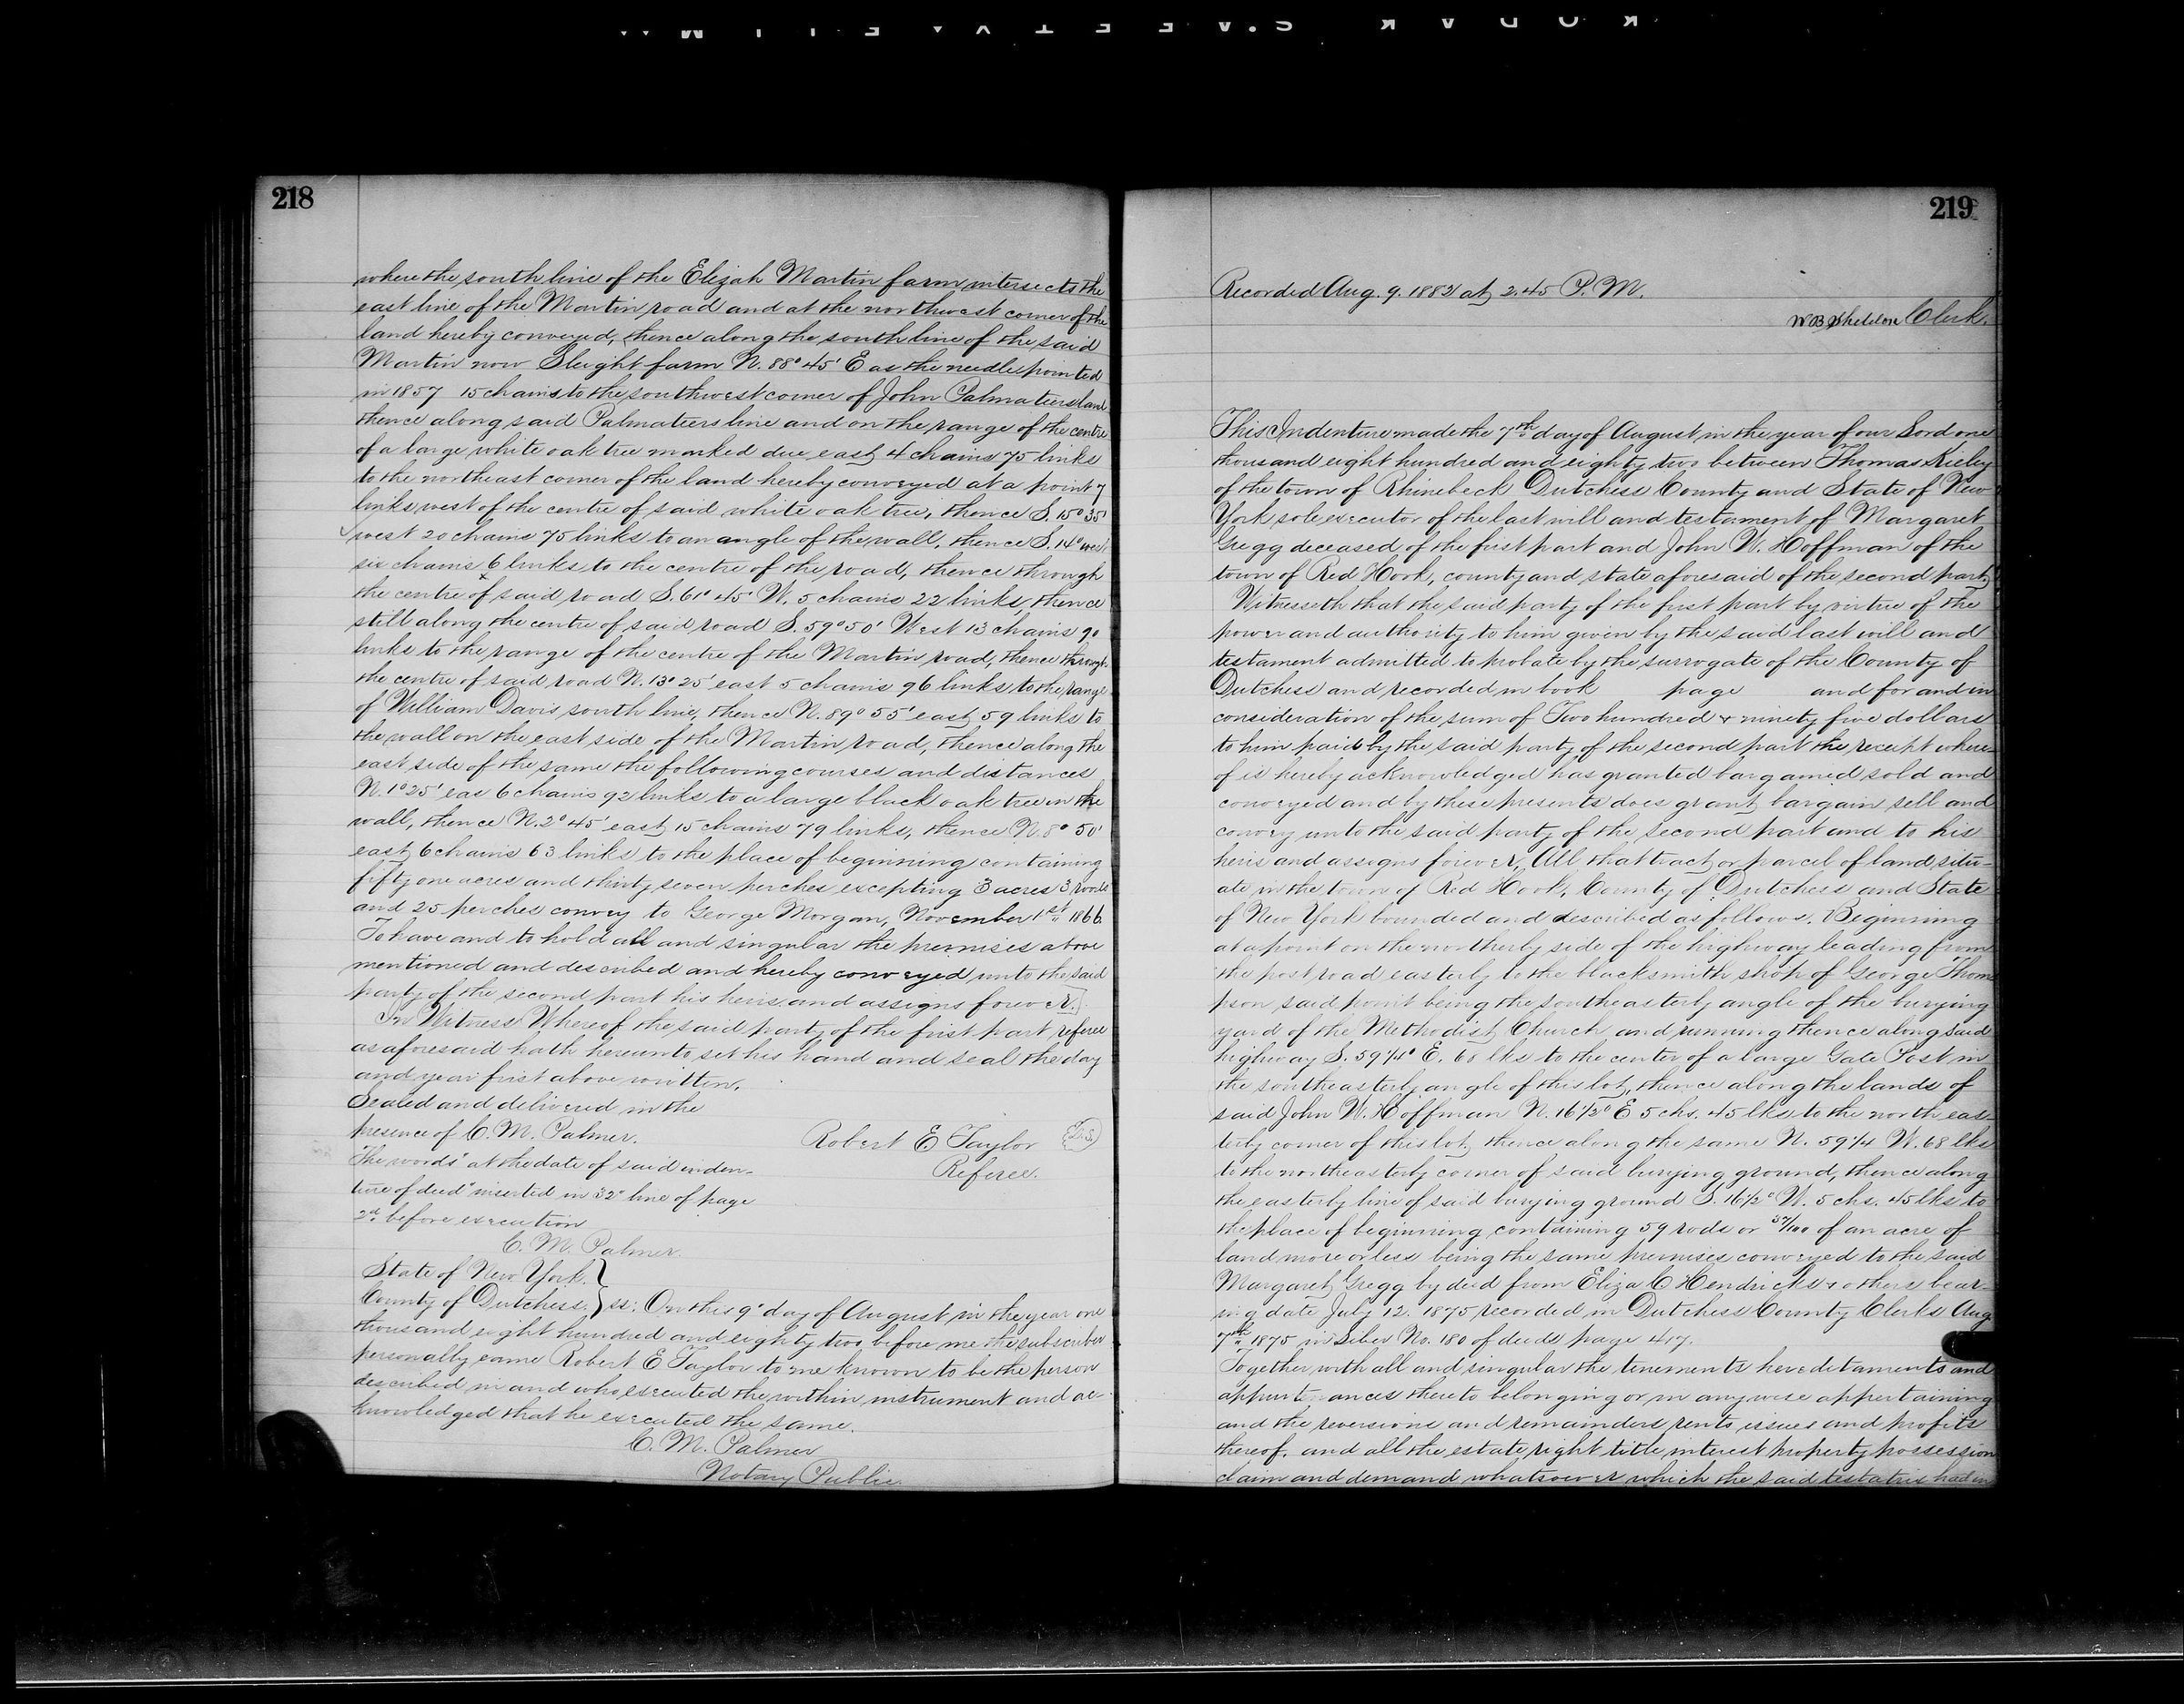 KODAK SAFETY FILM
218
where the south line of the Elijah Martin farm intersects the
east line of the Martin road and at the northwest corner of the
land hereby conveyed, thence along the south line of the said
Martin now Sleight farm N. 88° 45' E as the needle pointed
in 1857 15 chains to the southwest corner of John Palmatiers land
thence along said Palmatiers line and on the range of the centre
of a large white oak tree marked due east 4 chains 75 links
to the northeast corner of the land hereby conveyed at a point 7
links west of the centre of said white oak tree, thence S. 15° 35'
west 20 chains 75 links to an angle of the wall, thence S. 14° west
six chains 6 links to the centre of the road, thence through
the centre of said road S. 61° 45' W. 5 chains 22 links, thence
still along the centre of said road S. 59° 50' West 13 chains 90
links to the range of the centre of the Martin road, thence through
the centre of said road N. 13° 25' east 5 chains 96 links to the range
of William Davis south line, thence N. 89° 55' east 59 links to
the wall on the east side of the Martin road, thence along the
east side of the same the following courses and distances
N. 1° 25' eas 6 chains 92 links to a large black oak tree in the
wall, thence N. 2° 45' east 15 chains 79 links, thence N. 8° 50'
east 6 chains 63 links to the place of beginning containing
fifty one acres and thirty seven perches excepting 3 acres 3 roods
and 25 perches convey to George Morgan, November 1st 1866
To have and to hold all and singular the premises above
mentioned and described and hereby conveyed unto the said
party of the second part his heirs and assigns forever.
In Witness Whereof the said party of the first part referee
as aforesaid hath hereunto set his hand and seal the day
and year first above written.
Sealed and delivered in the
presence of C. M. Palmer. Robert E Taylor L.S.
"The words" at the date of said inden- Referee.
ture of deed" inserted in 32d line of page
2d before execution
C. M. Palmer
State of New York }
County of Dutchess } ss: On this 9" day of August in the year one
thousand eight hundred and eighty two before me the subscriber
personally came Robert E Taylor to me known to be the person
described in and who executed the within instrument and ac-
knowledged that he executed the same.
C. M. Palmer
Notary Public.
219
Recorded Aug. 9. 1882 at 2.45 P. M.
W B Sheldon Clerk.
This Indenture made the 7th day of August in the year of our Lord one
thousand eight hundred and eighty two between Thomas
of the town of Rhinebeck Dutchess County and State of New
York sole executor of the last will and testament of Margaret
Gregg deceased of the first part and John W. Hoffman of the
town of Red Hook, county and state aforesaid of the second part
Witnesseth that the said party of the first part by virtue of the
power and authority to him given by the said last will and
testament admitted to probate by the surrogate of the County of
Dutchess and recorded in book page and for and in
consideration of the sum of Two hundred & ninety five dollars
to him paid by the said party of the second part the receipt where-
of is hereby acknowledged has granted bargained sold and
conveyed and by these presents does grant bargain sell and
convey unto the said party of the second part and to his
heirs and assigns forever, All that tract or parcel of land situ-
ate in the town of Red Hook, County of Dutchess and State
of New York bounded and described as follows. Beginning
at a point on the northerly side of the highway leading from
the post road easterly to the blacksmith shop of George Thom
pson said point being the southeasterly angle of the burying
yard of the Methodist Church and running thence along said
highway S. 59 1/4° E. 68 lks to the center of a large Gate Post in
the southeasterly angle of this lot, thence along the lands of
said John W. Hoffman N. 16 1/2° E 5 chs. 45 lks to the north eas-
terly corner of this lot, thence along the same N. 59 1/4 W. 68 lks
to the northeasterly corner of said burying ground, thence along
the easterly line of said burying ground S. 16 1/2° W. 5 chs. 45 lks to
the place of beginning containing 59 rods or 37/100 of an acre of
land more or less being the same premises conveyed to the said
Margaret Gregg by deed from Eliza C Hendricks & others bear-
ing date July 12. 1875 recorded in Dutchess County Clerks Aug
7th 1875 in Liber No. 180 of deeds page 417.
Together with all and singular the tenements hereditaments and
appurtenances thereto belonging or in any wise appertaining
and the reversions and remainders rents issues and profits
thereof. and all the estate right title interest property possession
claim and demand whatsoever which the said testatrix had in